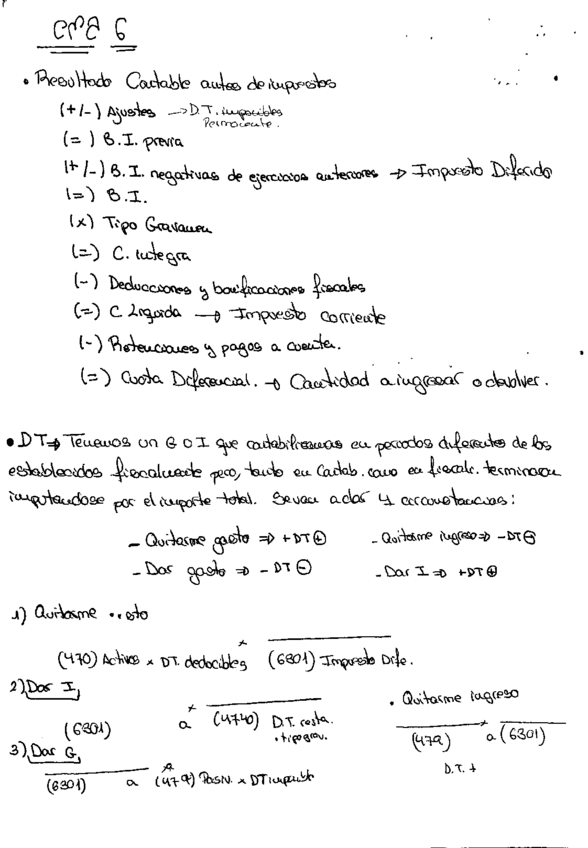 CMB 6
• Resultado Contable antes de impuestos
(+/-) Ajustes → D.T. imponibles
Permanente.
(=) B.I. previa
(+/-) B.I. negativas de ejercicios anteriores → Impuesto Diferido
(=) B.I.
(x) Tipo Gravamen
(=) C. Integra
(-) Deducciones y bonificaciones fiscales
(=) C Liquida → Impuesto corriente
(-) Retenciones y pagos a cuenta.
(=) Cuota Diferencial. → Cantidad a ingresar o devolver.
• DT → Tenemos un G O I que contabilizamos en periodos diferentes de los
establecidos fiscalmente pero, tanto en Contab. como en fiscalc. terminaran
imputandose por el importe total. Se van a dar 4 circunstancias:
- Quitarme gasto ⇒ +DT⊕ - Quitarme ingreso ⇒ -DT⊖
- Dar gasto ⇒ -DT⊖ - Dar I ⇒ +DT⊕
1) Quitarme sto
x
(470) Activos x DT. deducibles (6301) Impuesto Dife.
2) Dar I, • Quitarme ingreso
x
(6301) a (4740) D.T. resta. (479) a (6301)
• tipo grav. D.T. +
3) Dar G,
x
(6301) a (479) Pasiv. x DT imponible